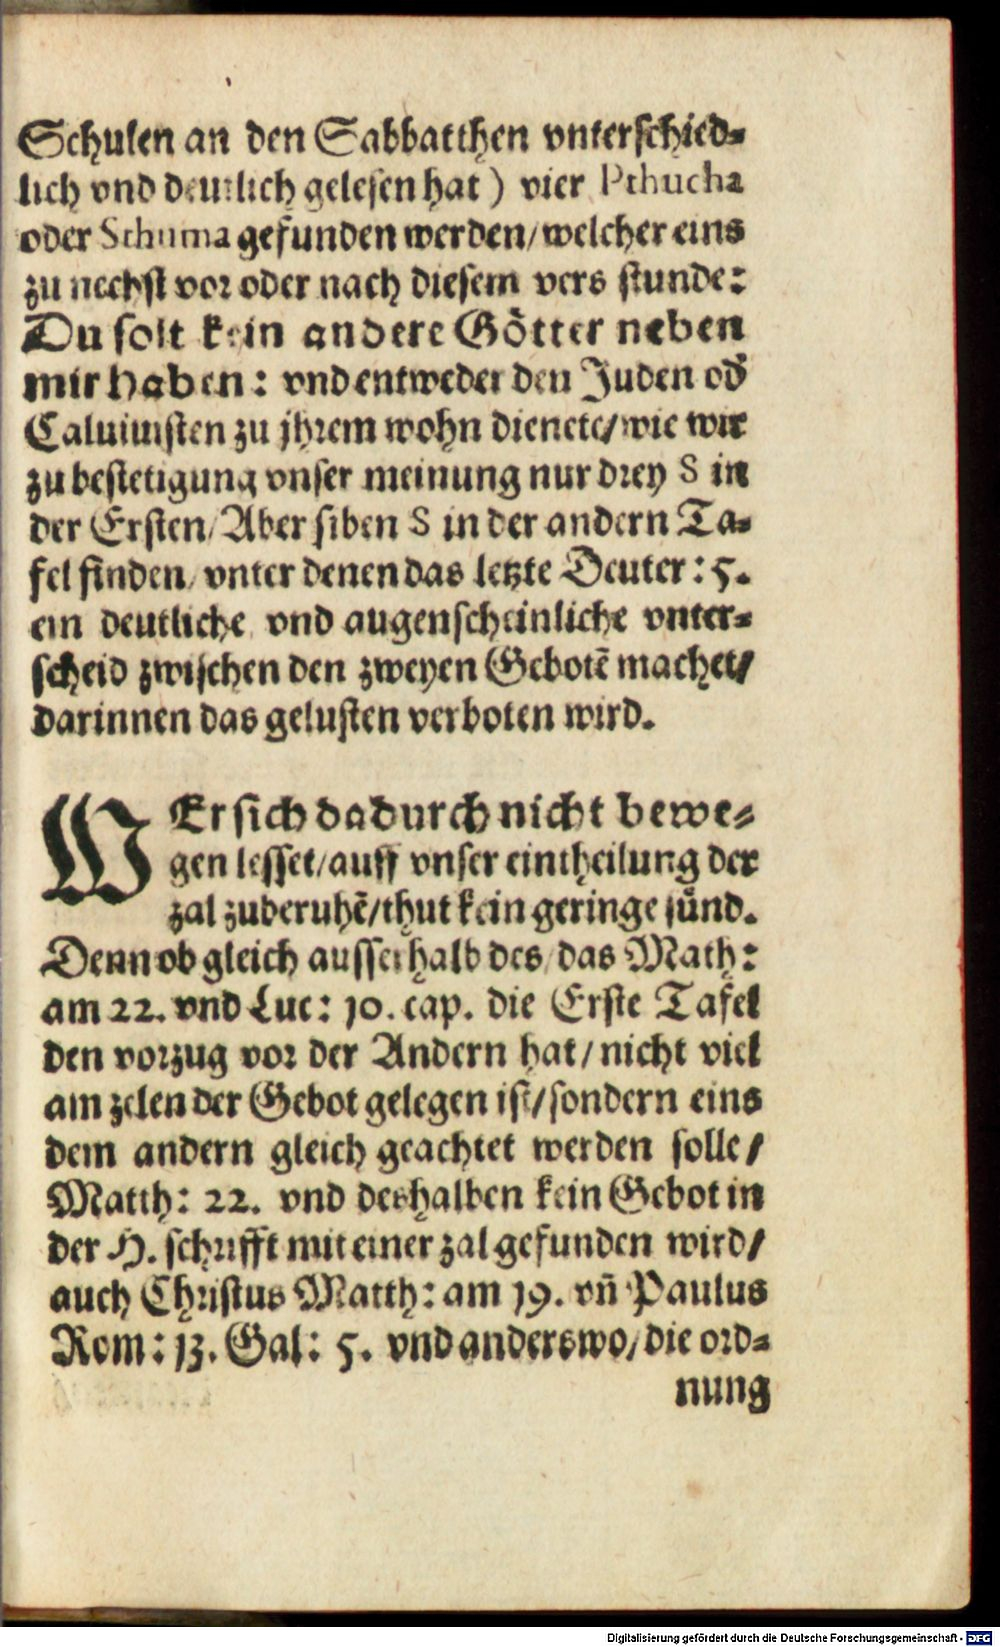 Schulen an den Sabbatthen vnterschied⸗
lich vnd deutlich gelesen hat) vier Pthucha
oder Sthuma gefunden werden/welcher eins
zu nechst vor oder nach diesem vers stunde:
Du solt kein andere Götter neben
mir haben: vnd entweder den Juden od̄
Caluinisten zu jhrem wohn dienete/wie wir
zu bestetigung vnser meinung nur drey S in
der Ersten/Aber siben S in der andern Ta⸗
fel finden/vnter denen das letzte Deuter: 5.
ein deutliche vnd augenscheinliche vnter⸗
scheid zwischen den zweyen Gebotē machet/
darinnen das gelusten verboten wird.
WEr sich dadurch nicht bewe⸗
gen lesset/auff vnser eintheilung der
zal zuberuhē/thut kein geringe sünd.
Denn ob gleich ausserhalb des/das Math:
am 22. vnd Luc: 10. cap. die Erste Tafel
den vorzug vor der Andern hat/nicht viel
am zelen der Gebot gelegen ist/sondern eins
dem andern gleich geachtet werden solle/
Matth: 22. vnd deshalben kein Gebot in
der H. schrifft mit einer zal gefunden wird/
auch Christus Matth: am 19. vn̄ Paulus
Rom: 13. Gal: 5. vnd anderswo/die ord⸗
nung
Digitalisierung gefördert durch die Deutsche Forschungsgemeinschaft - DFG